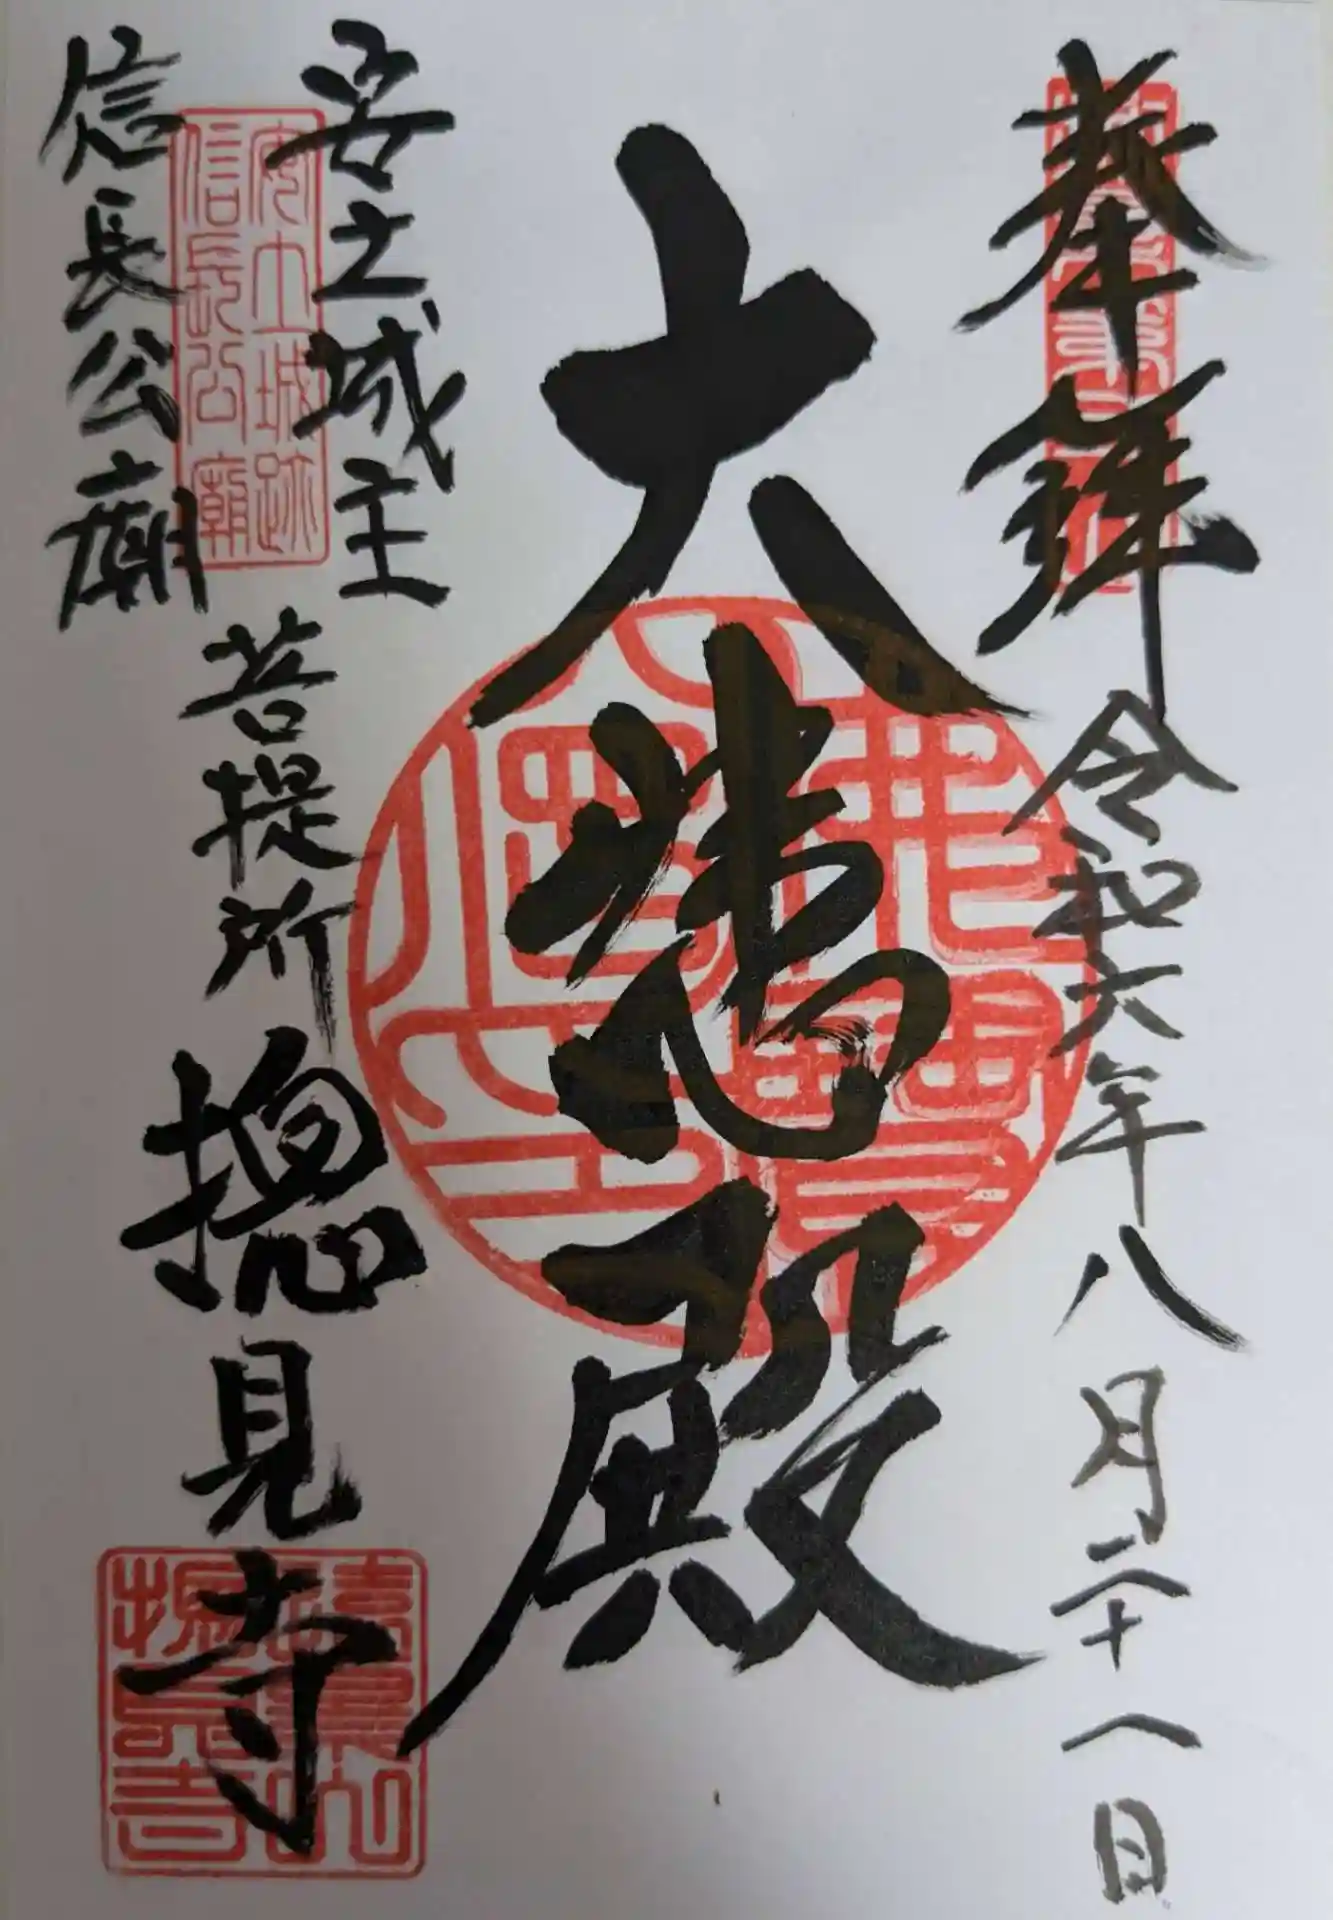 奉拝 令和六年八月二十一日
大悲殿
安土城主
信長公廟
菩提所 摠見寺
安土城跡
信長公廟
遠景山
摠見寺